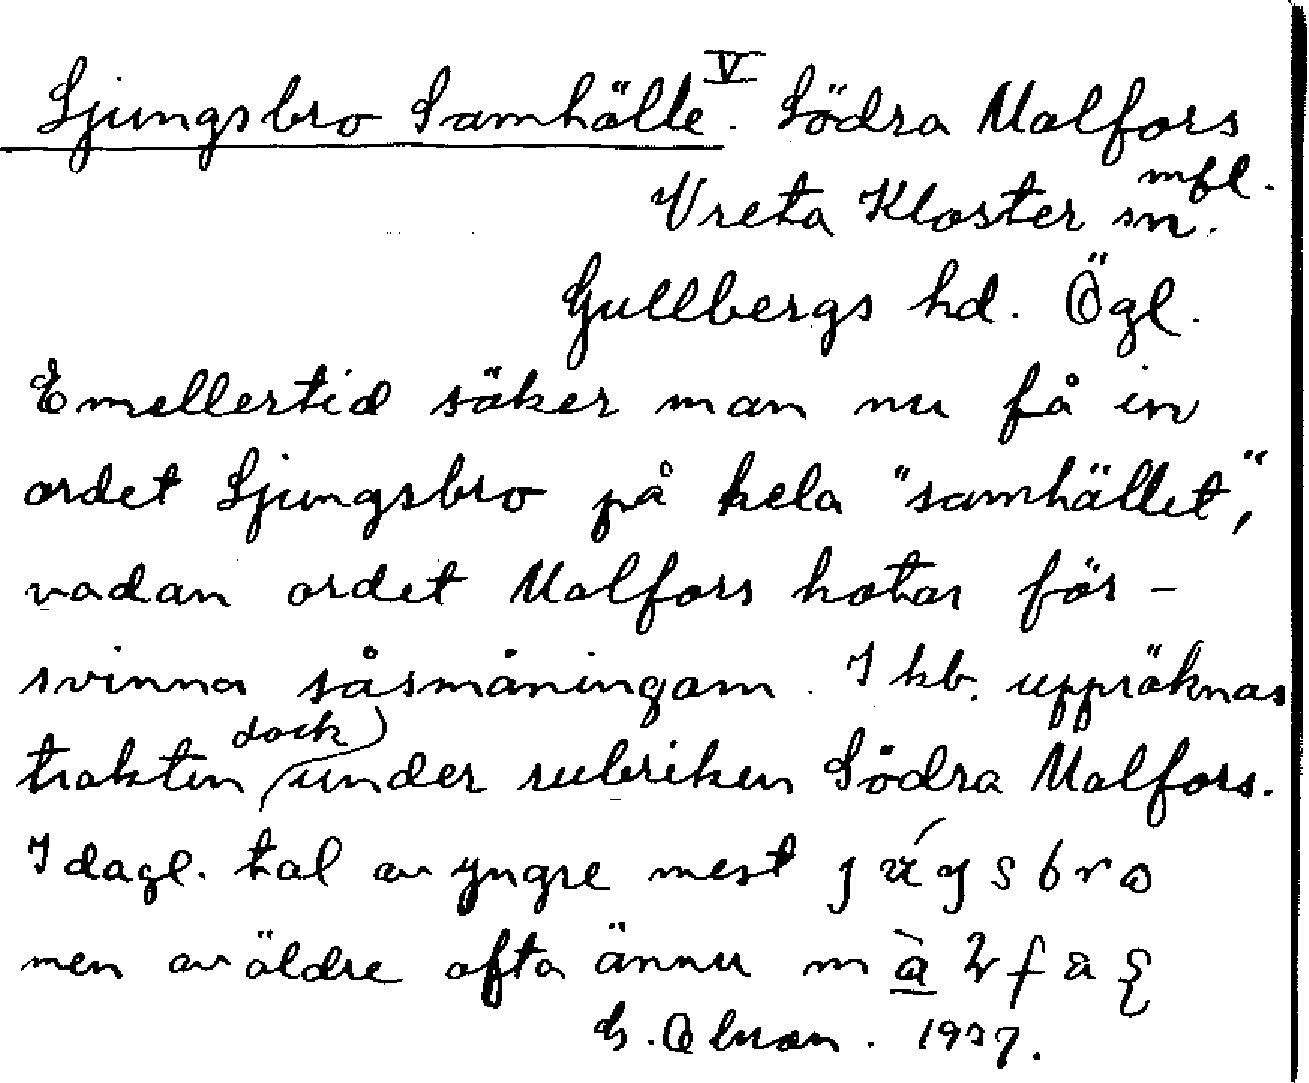 Ljungsbro Samhälle V. Södra Malfors mfl.
Vreta Kloster sn.
Gullbergs hd. Ögl.
Emellertid söker man nu få in
ordet Ljungsbro på hela "samhället",
vadan ordet Malfors hotar för-
svinna såsmåningom. I kb. uppräknas
trakten dock under rubriken Södra Malfors.
I dagl. tal av yngre mest
men av äldre ofta ännu
1937.